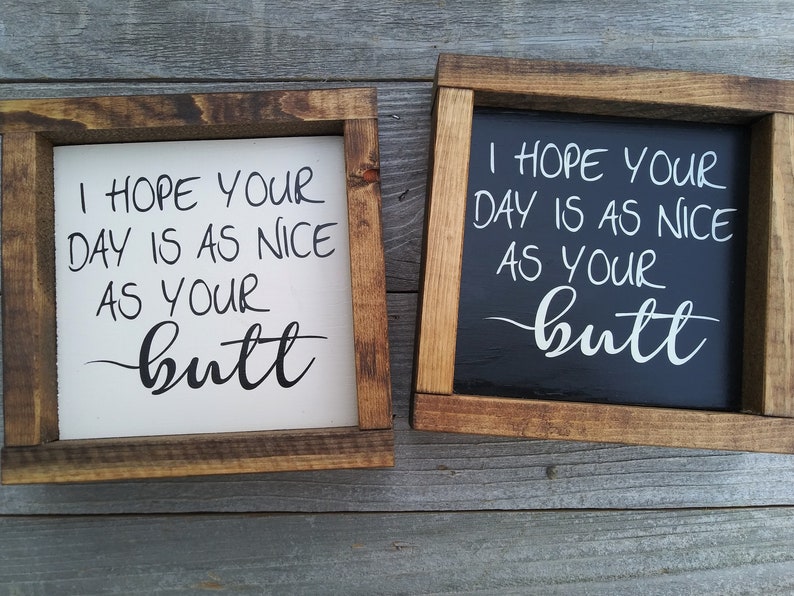 I HOPE YOUR
DAY IS AS NICE
AS YOUR
butt
I HOPE YOUR
DAY IS AS NICE
AS YOUR
butt